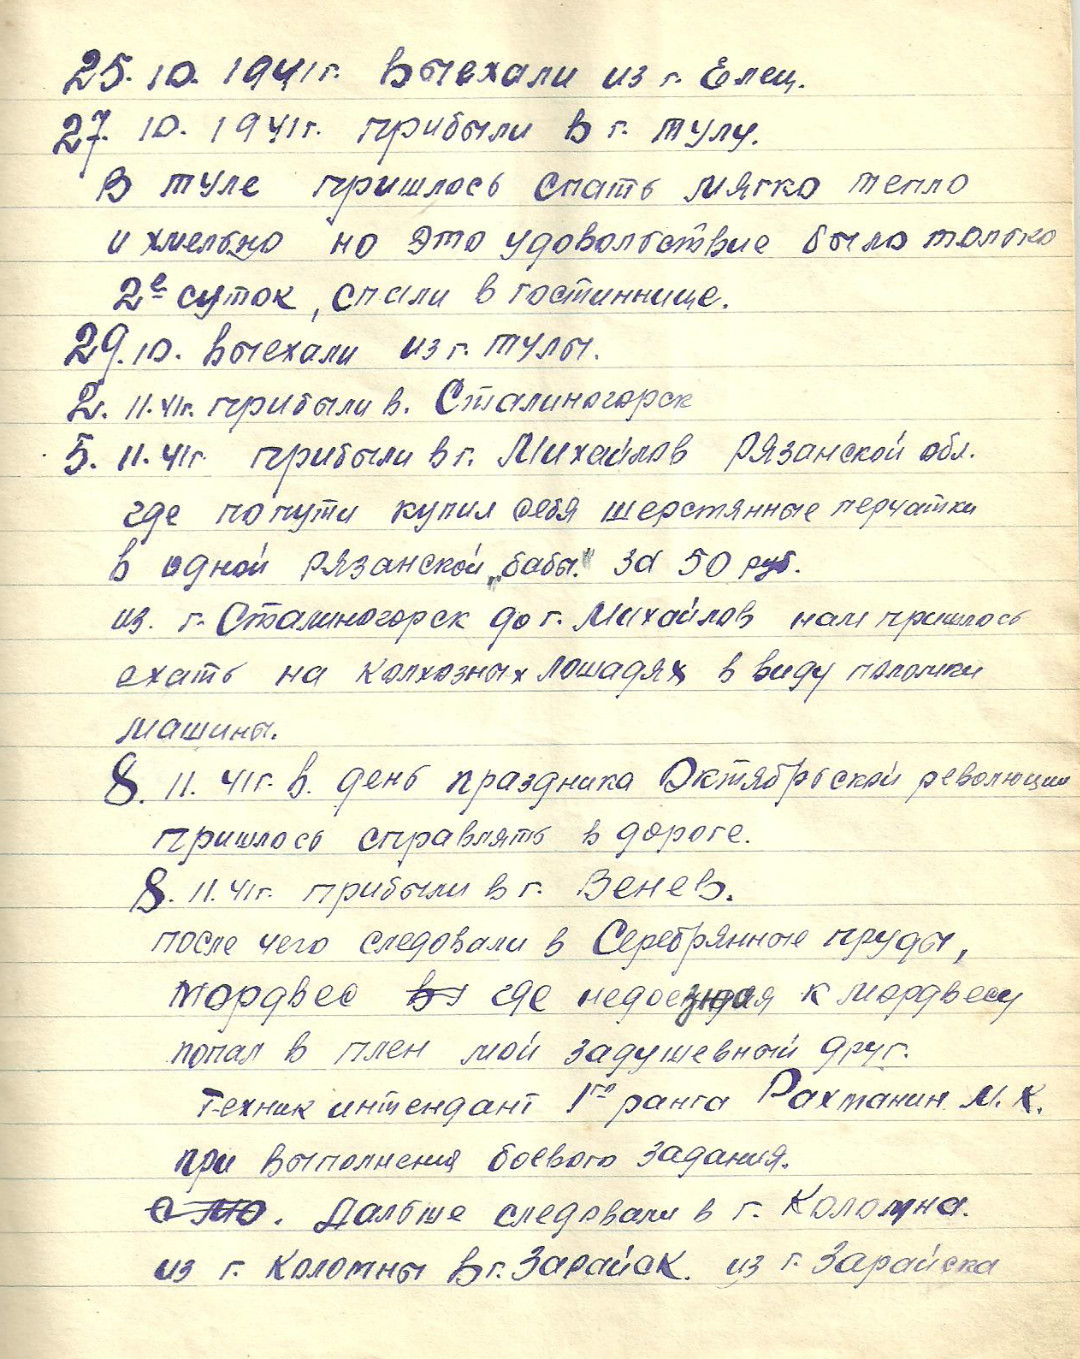 25. 10. 1941г. выехали из г. Елец.
27. 10. 1941г. прибыли в г. Тулу.
В Туле пришлось спать мягко тепло
и хмельно но это удовольствие было только
2е суток, спали в гостиннице.
29.10. выехали из г. Тулы.
2. 11.41г. прибыли в. Сталиногорск
5. 11.41г прибыли в г. Михайлов Рязанской обл.
где попути купил себя шерстянные перчатки
в одной Рязанской „бабы." за 50 руб.
из. г. Сталиногорск до г. Михайлов нам пришлось
ехать на колхозных лошадях в виду поломки
машины.
8. 11. 41г. в. день праздника Октябрьской революции
пришлось справлять в дороге.
8. 11.41г. прибыли в г. Венев.
после чего следовали в Серебрянные пруды,
Мордвес где недоезжая к Мордвесу
попал в плен мой задушевный друг.
Техник интендант 1го ранга Рахманин М. К.
при выполнения боевого задания.
с мо. Дальше следовали в г. Коломна.
из г. Коломны в г. Зарайск. из г. Зарайска